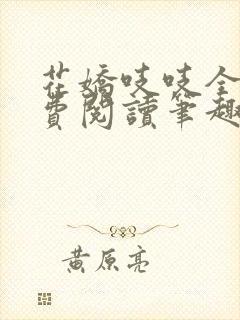 花嬌吱吱全
費閱讀筆趣
黃原亮